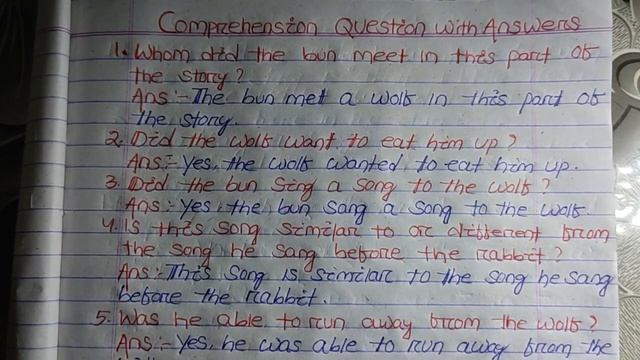 Comprehension Question with Answers
1. Whom did the bun meet in this part of
the story?
Ans:- The bun met a wolf in this part of
the story.
2. Did the wolf want to eat him up?
Ans:- Yes, the wolf wanted to eat him up.
3. Did the bun sing a song to the wolf?
Ans:- Yes, the bun sang a song to the wolf.
4. Is this song similar to or different from
the song he sang before the rabbit?
Ans:- This song is similar to the song he sang
before the rabbit.
5. Was he able to run away from the wolf?
Ans:- Yes, he was able to run away from the